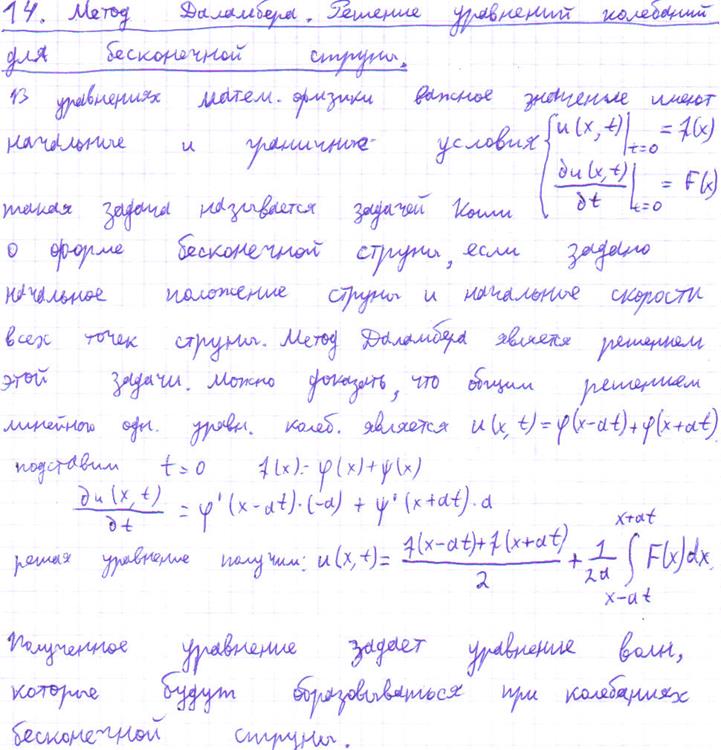 14. Метод Даламбера. Решение уравнений колебаний
для бесконечной струны.
В уравнениях матем. физики важное значение имеют
начальные и граничные условия { u(x,t)|t=0 = f(x)
∂u(x,t)/∂t|t=0 = F(x)
такая задача называется задачей Коши
о форме бесконечной струны, если задано
начальное положение струны и начальные скорости
всех точек струны. Метод Даламбера является решением
этой задачи. Можно доказать, что общим решением
линейного одн. уравн. колеб. является u(x,t)=φ(x-at)+φ(x+at)
подставим t=0 f(x)=φ(x)+ψ(x)
∂u(x,t)/∂t = φ'(x-at)·(-a) + ψ'(x+at)·a
решая уравнение получим: u(x,t)= (f(x-at)+f(x+at))/2 + 1/2a ∫_{x-at}^{x+at} F(x)dx
Полученное уравнение задает уравнение волн,
которые будут образовываться при колебаниях
бесконечной струны.